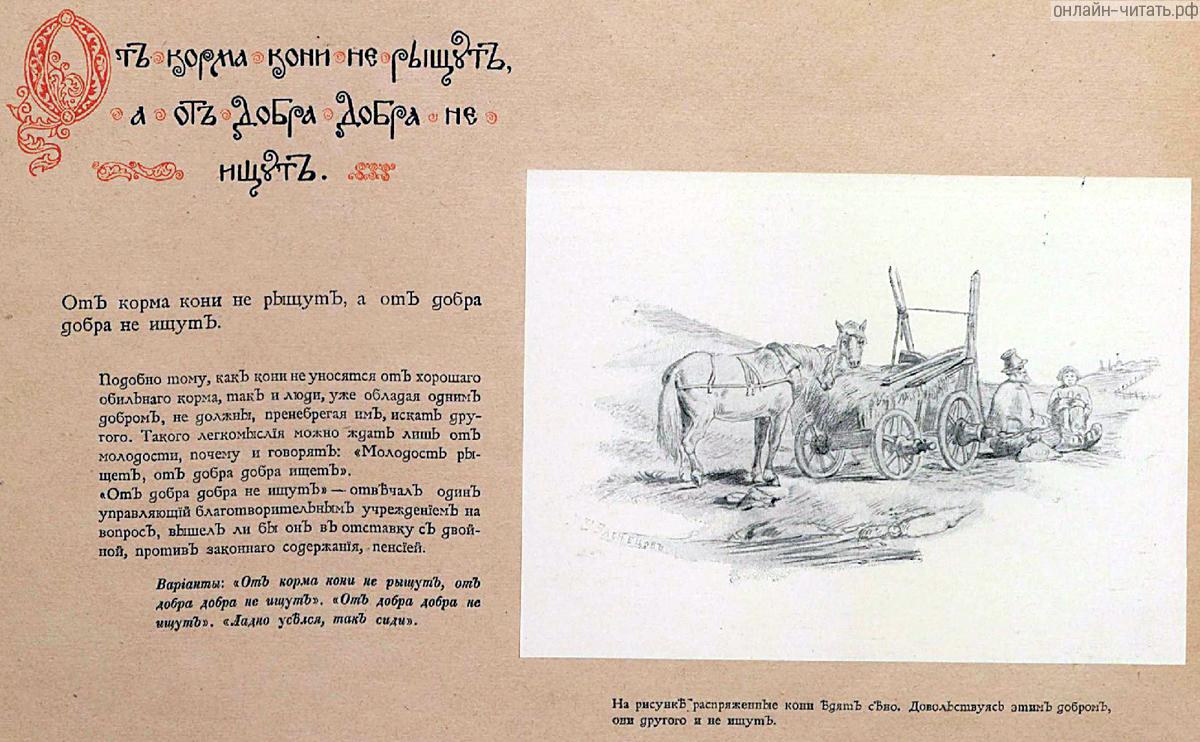 онлайн-читать.рф
Отъ корма кони не рыщутъ,
а отъ добра добра не
ищутъ.
Отъ корма кони не рыщутъ, а отъ добра
добра не ищутъ.
Подобно тому, какъ кони не уносятся отъ хорошаго
обильнаго корма, такъ и люди, уже обладая однимъ
добромъ, не должны, пренебрегая имъ, искать дру-
гого. Такого легкомыслія можно ждать лишь отъ
молодости, почему и говорятъ: «Молодость ры-
щетъ, отъ добра добра ищетъ».
«Отъ добра добра не ищутъ» — отвѣчалъ одинъ
управляющій благотворительнымъ учрежденіемъ на
вопросъ, вышелъ ли бы онъ въ отставку съ двой-
ной, противъ законнаго содержанія, пенсіей.
Варіанты: «Отъ корма кони не рыщутъ, отъ
добра добра не ищутъ». «Отъ добра добра не
ищутъ». «Ладно усѣлся, такъ сиди».
На рисункѣ распряженные кони ѣдятъ сѣно. Довольствуясь этимъ добромъ,
они другого и не ищутъ.